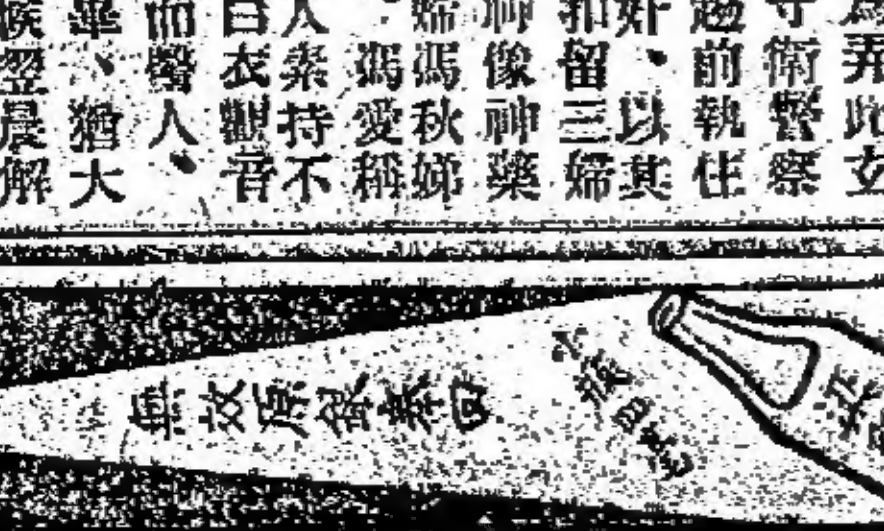 弄此女
守衛警察
趨前執住
奸、以其
扣留三婦
神像神藥
婦馮秋娣
、馮愛稱
人素持不
白衣觀音
而醫人、
畢、猶大
候翌晨解
無效原銀奉回